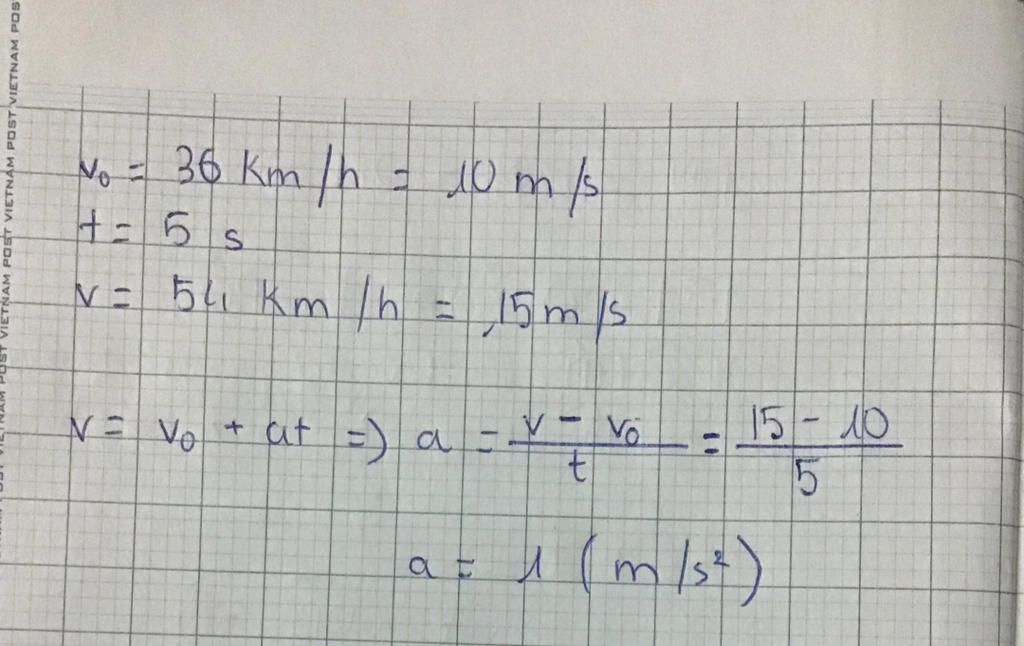 VIETNAM POST VIETNAM POST VIETNAM POST VIETNAM POST VIETNAM POS
v₀ = 36 Km/h = 10 m/s
t = 5 s
v = 54 Km/h = 15 m/s
v = v₀ + at => a = (v - v₀)/t = (15 - 10)/5
a = 1 (m/s²)